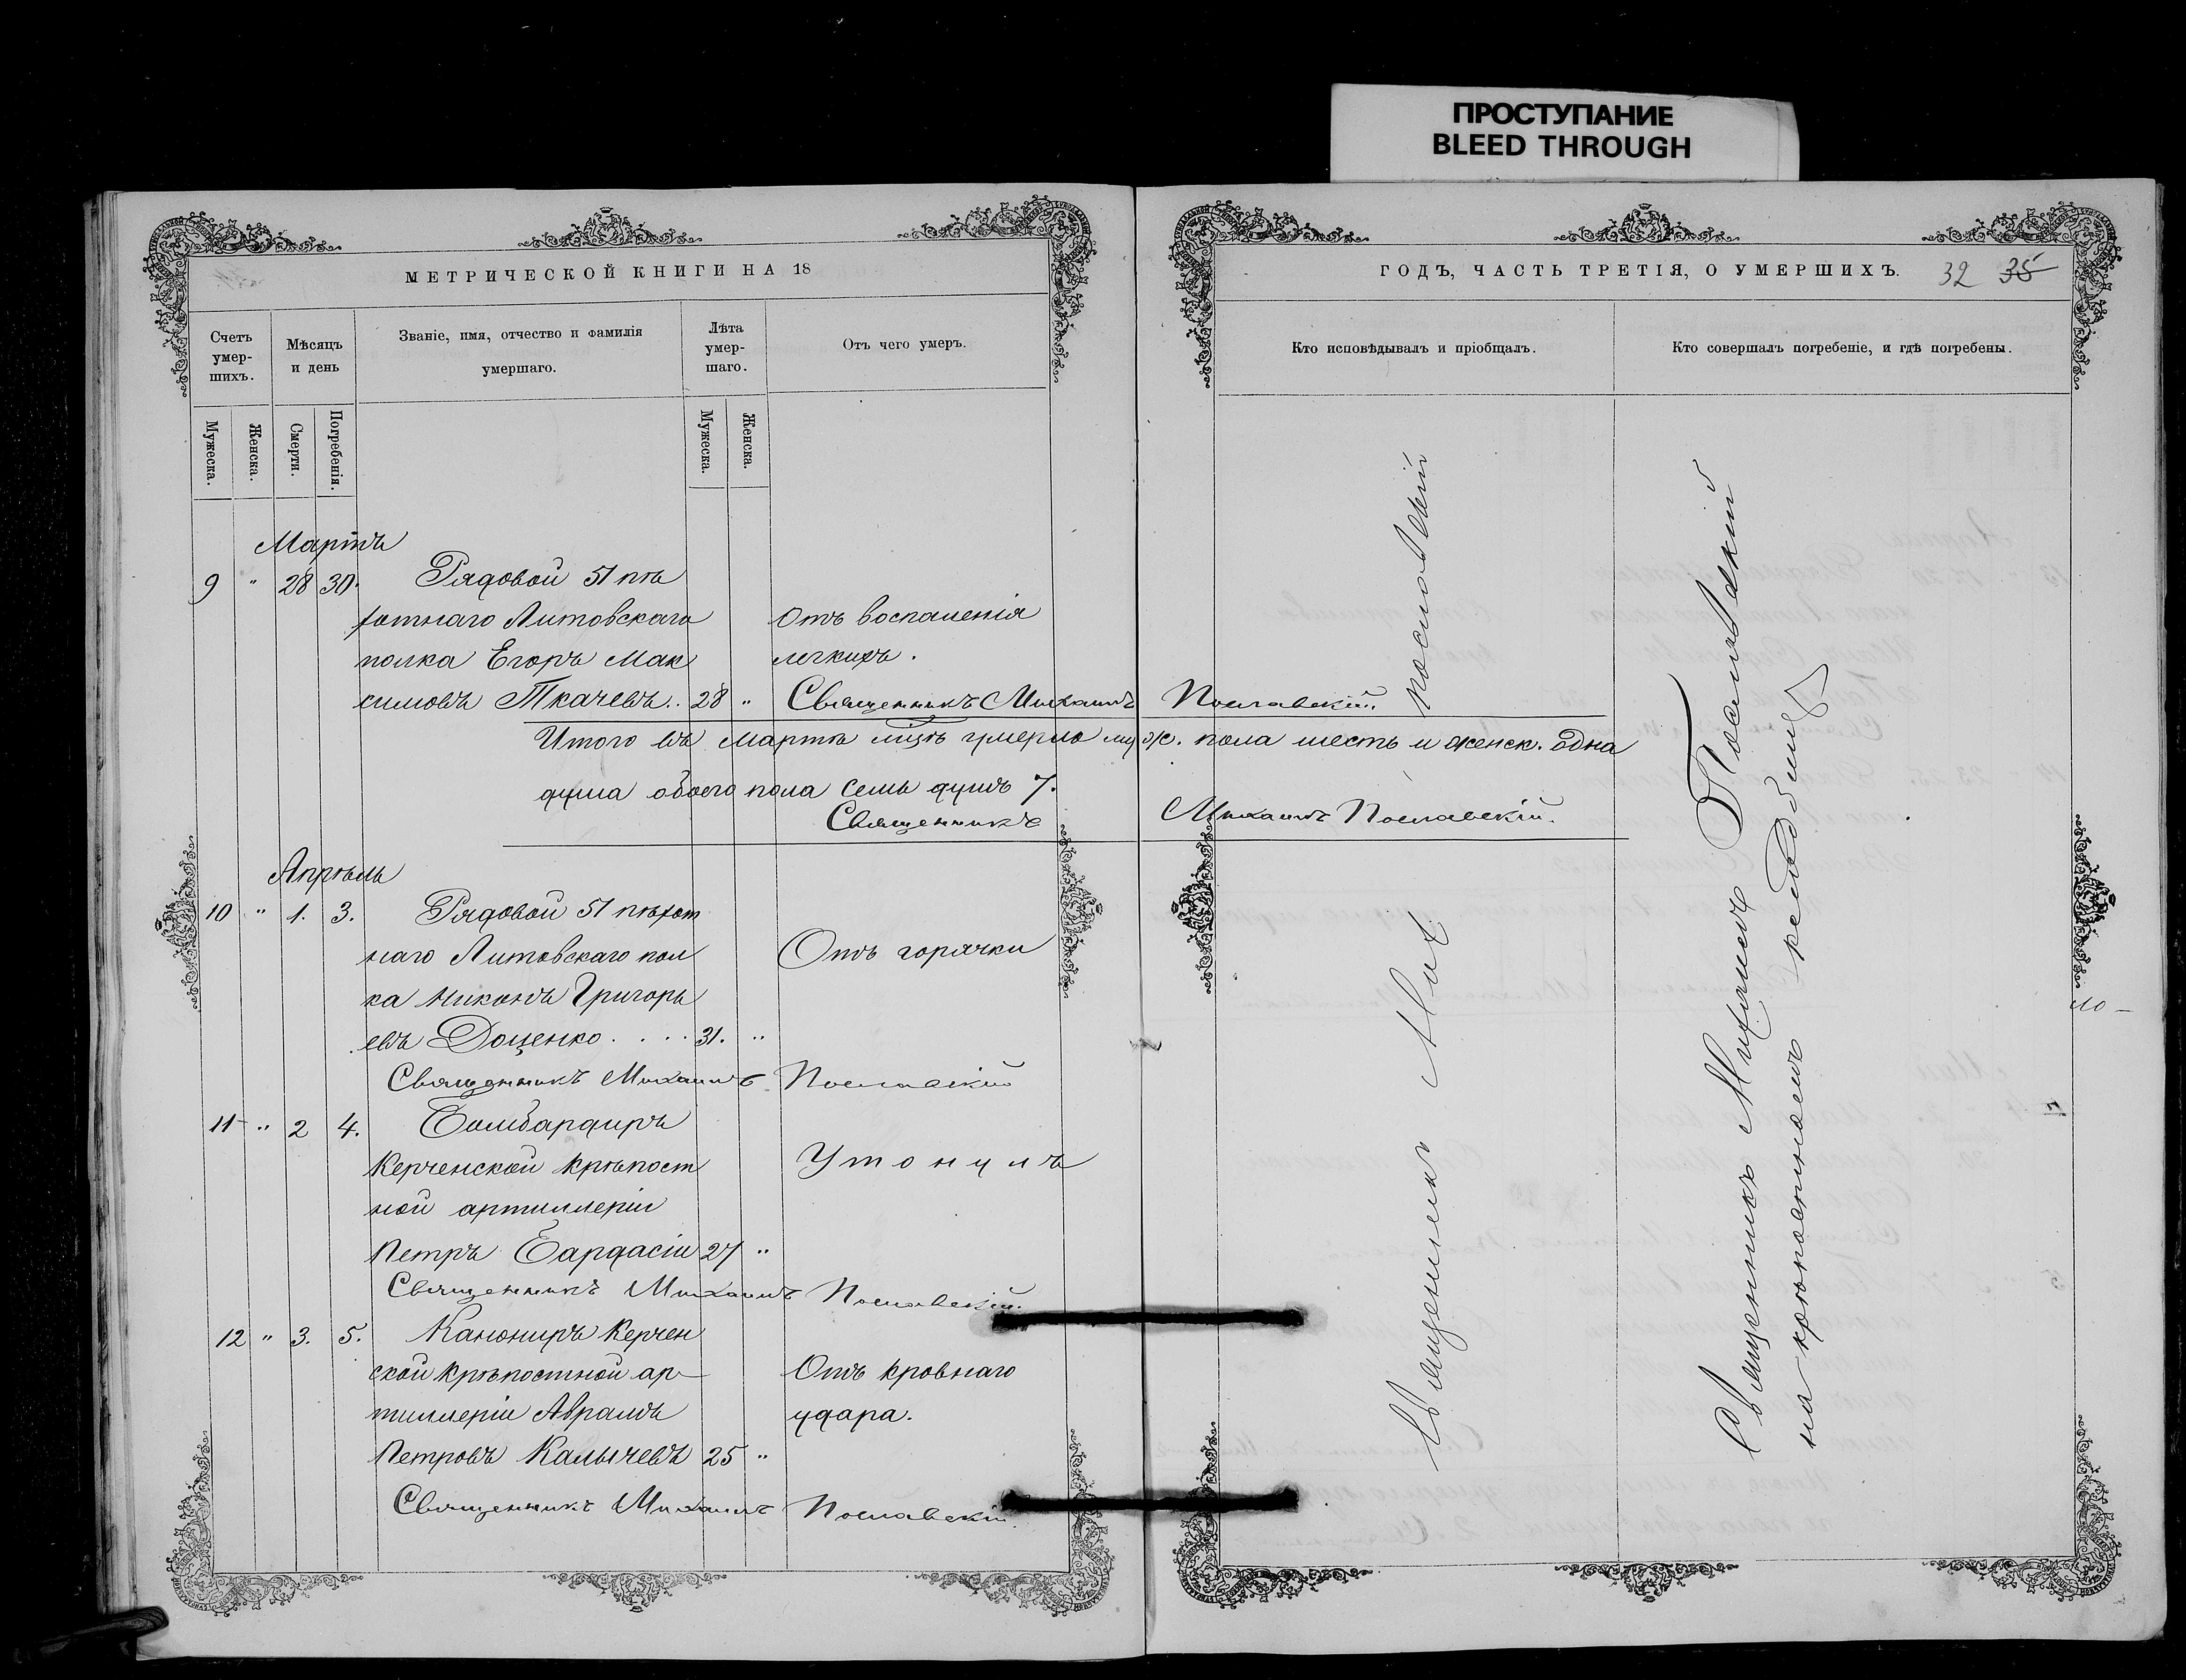 ПРОСТУПАНИЕ
BLEED THROUGH
МЕТРИЧЕСКОЙ КНИГИ НА 18
Счетъ умер-шихъ.
Мѣсяцъ и день
Званіе, имя, отчество и фамилія умершаго.
Лѣта умер-шаго.
Отъ чего умеръ.
Мужеска.
Женска.
Смерти.
Погребенія.
Мужеска.
Женска.
Мартъ
9 " 28 30. Рядовой 51 пѣ
хотнаго Литовскаго Отъ воспаленія
полка Егоръ Мак легкихъ.
симовъ Ткачевъ.. 28 " Священникъ Михаилъ Пославскій.
Итого въ Мартѣ мцѣ умерло муж. пола шесть и женск. одна
душа обоего пола семь душъ 7.
Священникъ Михаилъ Пославскій.
Апрѣль
10 " 1. 3. Рядовой 51 пѣхот
наго Литовскаго пол Отъ горячки
ка Никонъ Григорь
евъ Доценко . . . . 31. "
Священникъ Михаилъ Пославскій
11 " 2 4. Бомбардиръ
Керченской крѣпост Утонулъ
ной артиллеріи
Петръ Бардасіи 27 "
Священникъ Михаилъ Пославскій.
12 " 3. 5. Канониръ Керчен
ской крѣпостной ар- Отъ кровнаго
тиллеріи Аврамъ удара.
Петровъ Калычевъ 25 "
Священникъ Михаилъ Пославскій.
ГОДЪ, ЧАСТЬ ТРЕТІЯ, О УМЕРШИХЪ.
32 35
Кто исповѣдывалъ и пріобщалъ.
Кто совершалъ погребеніе, и гдѣ погребены.
Священникъ Пославскій
Священникъ Михаилъ Пославскій
на крѣпостномъ кладбищѣ